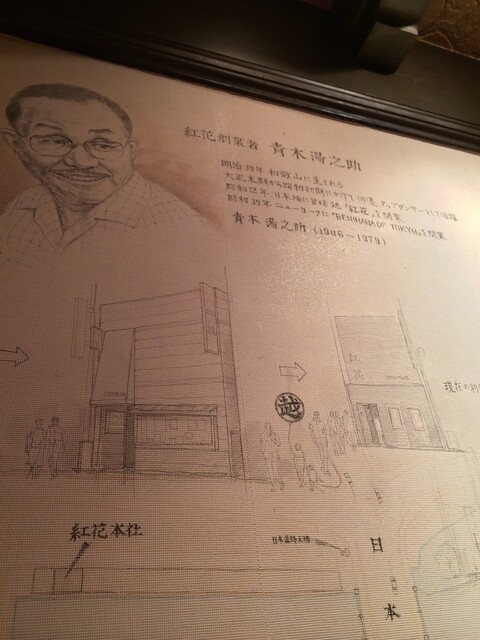 紅花創業者 青木湯之助
明治39年 和歌山に生まれる
大正末期から昭和初期にかけて 俳優、タップダンサーとして活躍
昭和12年 日本橋に甘味処「紅花」を開業
昭和39年 ニューヨークに「BENIHANA OF TOKYO」を開業
青木 湯之助 (1906〜1979)
紅花
越
紅花
現在の
紅花本社
日本道路元標
日
本